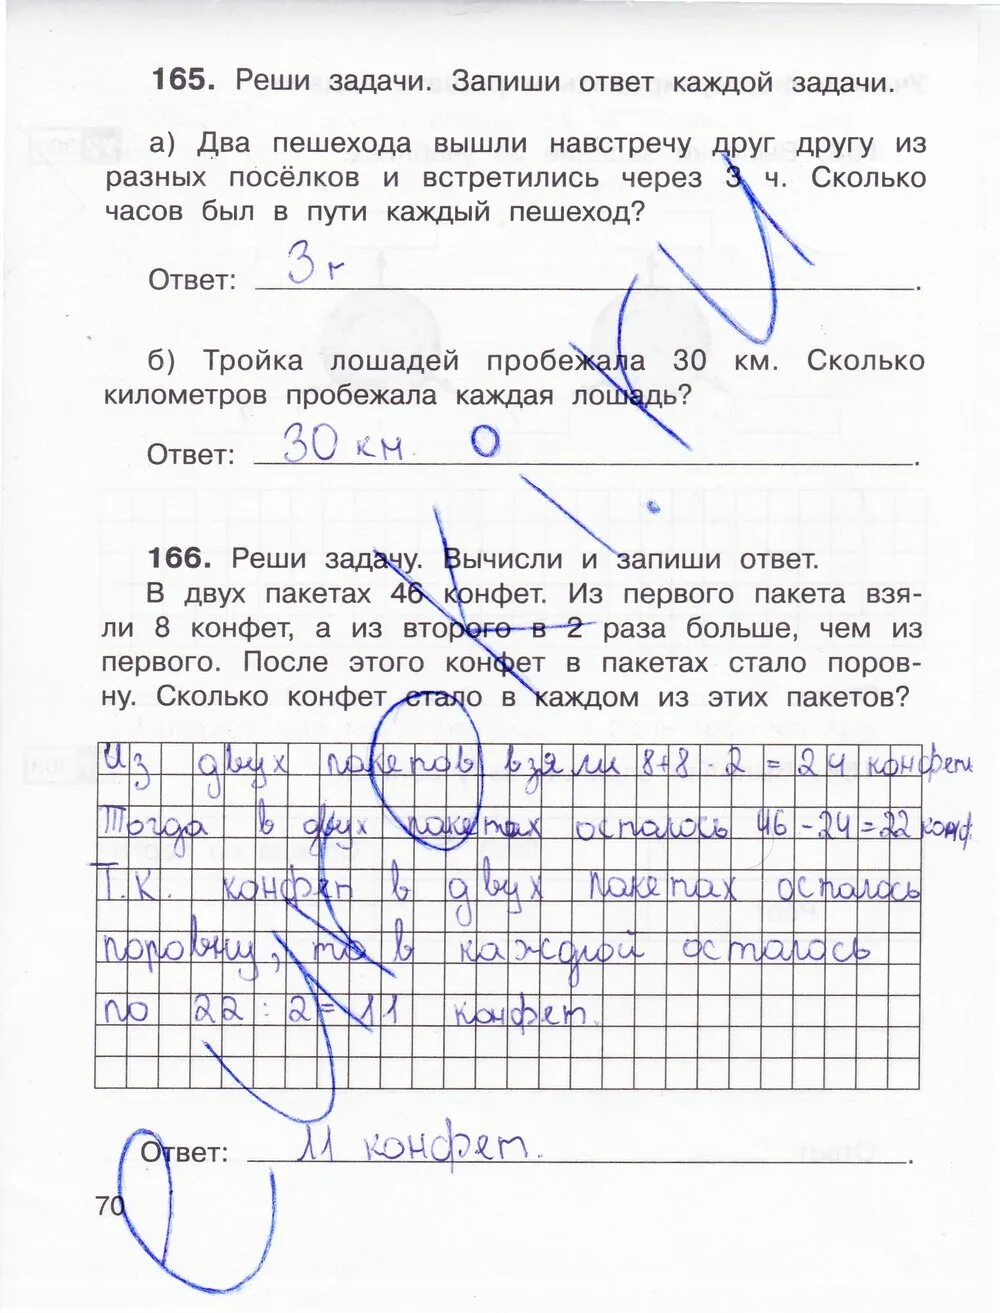 165. Реши задачи. Запиши ответ каждой задачи.
а) Два пешехода вышли навстречу друг другу из
разных посёлков и встретились через 3 ч. Сколько
часов был в пути каждый пешеход?
Ответ: 3 ч.
б) Тройка лошадей пробежала 30 км. Сколько
километров пробежала каждая лошадь?
Ответ: 30 км.
166. Реши задачу. Вычисли и запиши ответ.
В двух пакетах 46 конфет. Из первого пакета взя-
ли 8 конфет, а из второго в 2 раза больше, чем из
первого. После этого конфет в пакетах стало поров-
ну. Сколько конфет стало в каждом из этих пакетов?
Из двух пакетов взяли 8+8·2=24 конфеты
Тогда в двух пакетах осталось 46-24=22 конф.
Т.К. конфет в двух пакетах осталось
поровну, то в каждой осталось
по 22:2=11 конфет.
Ответ: 11 конфет.
70